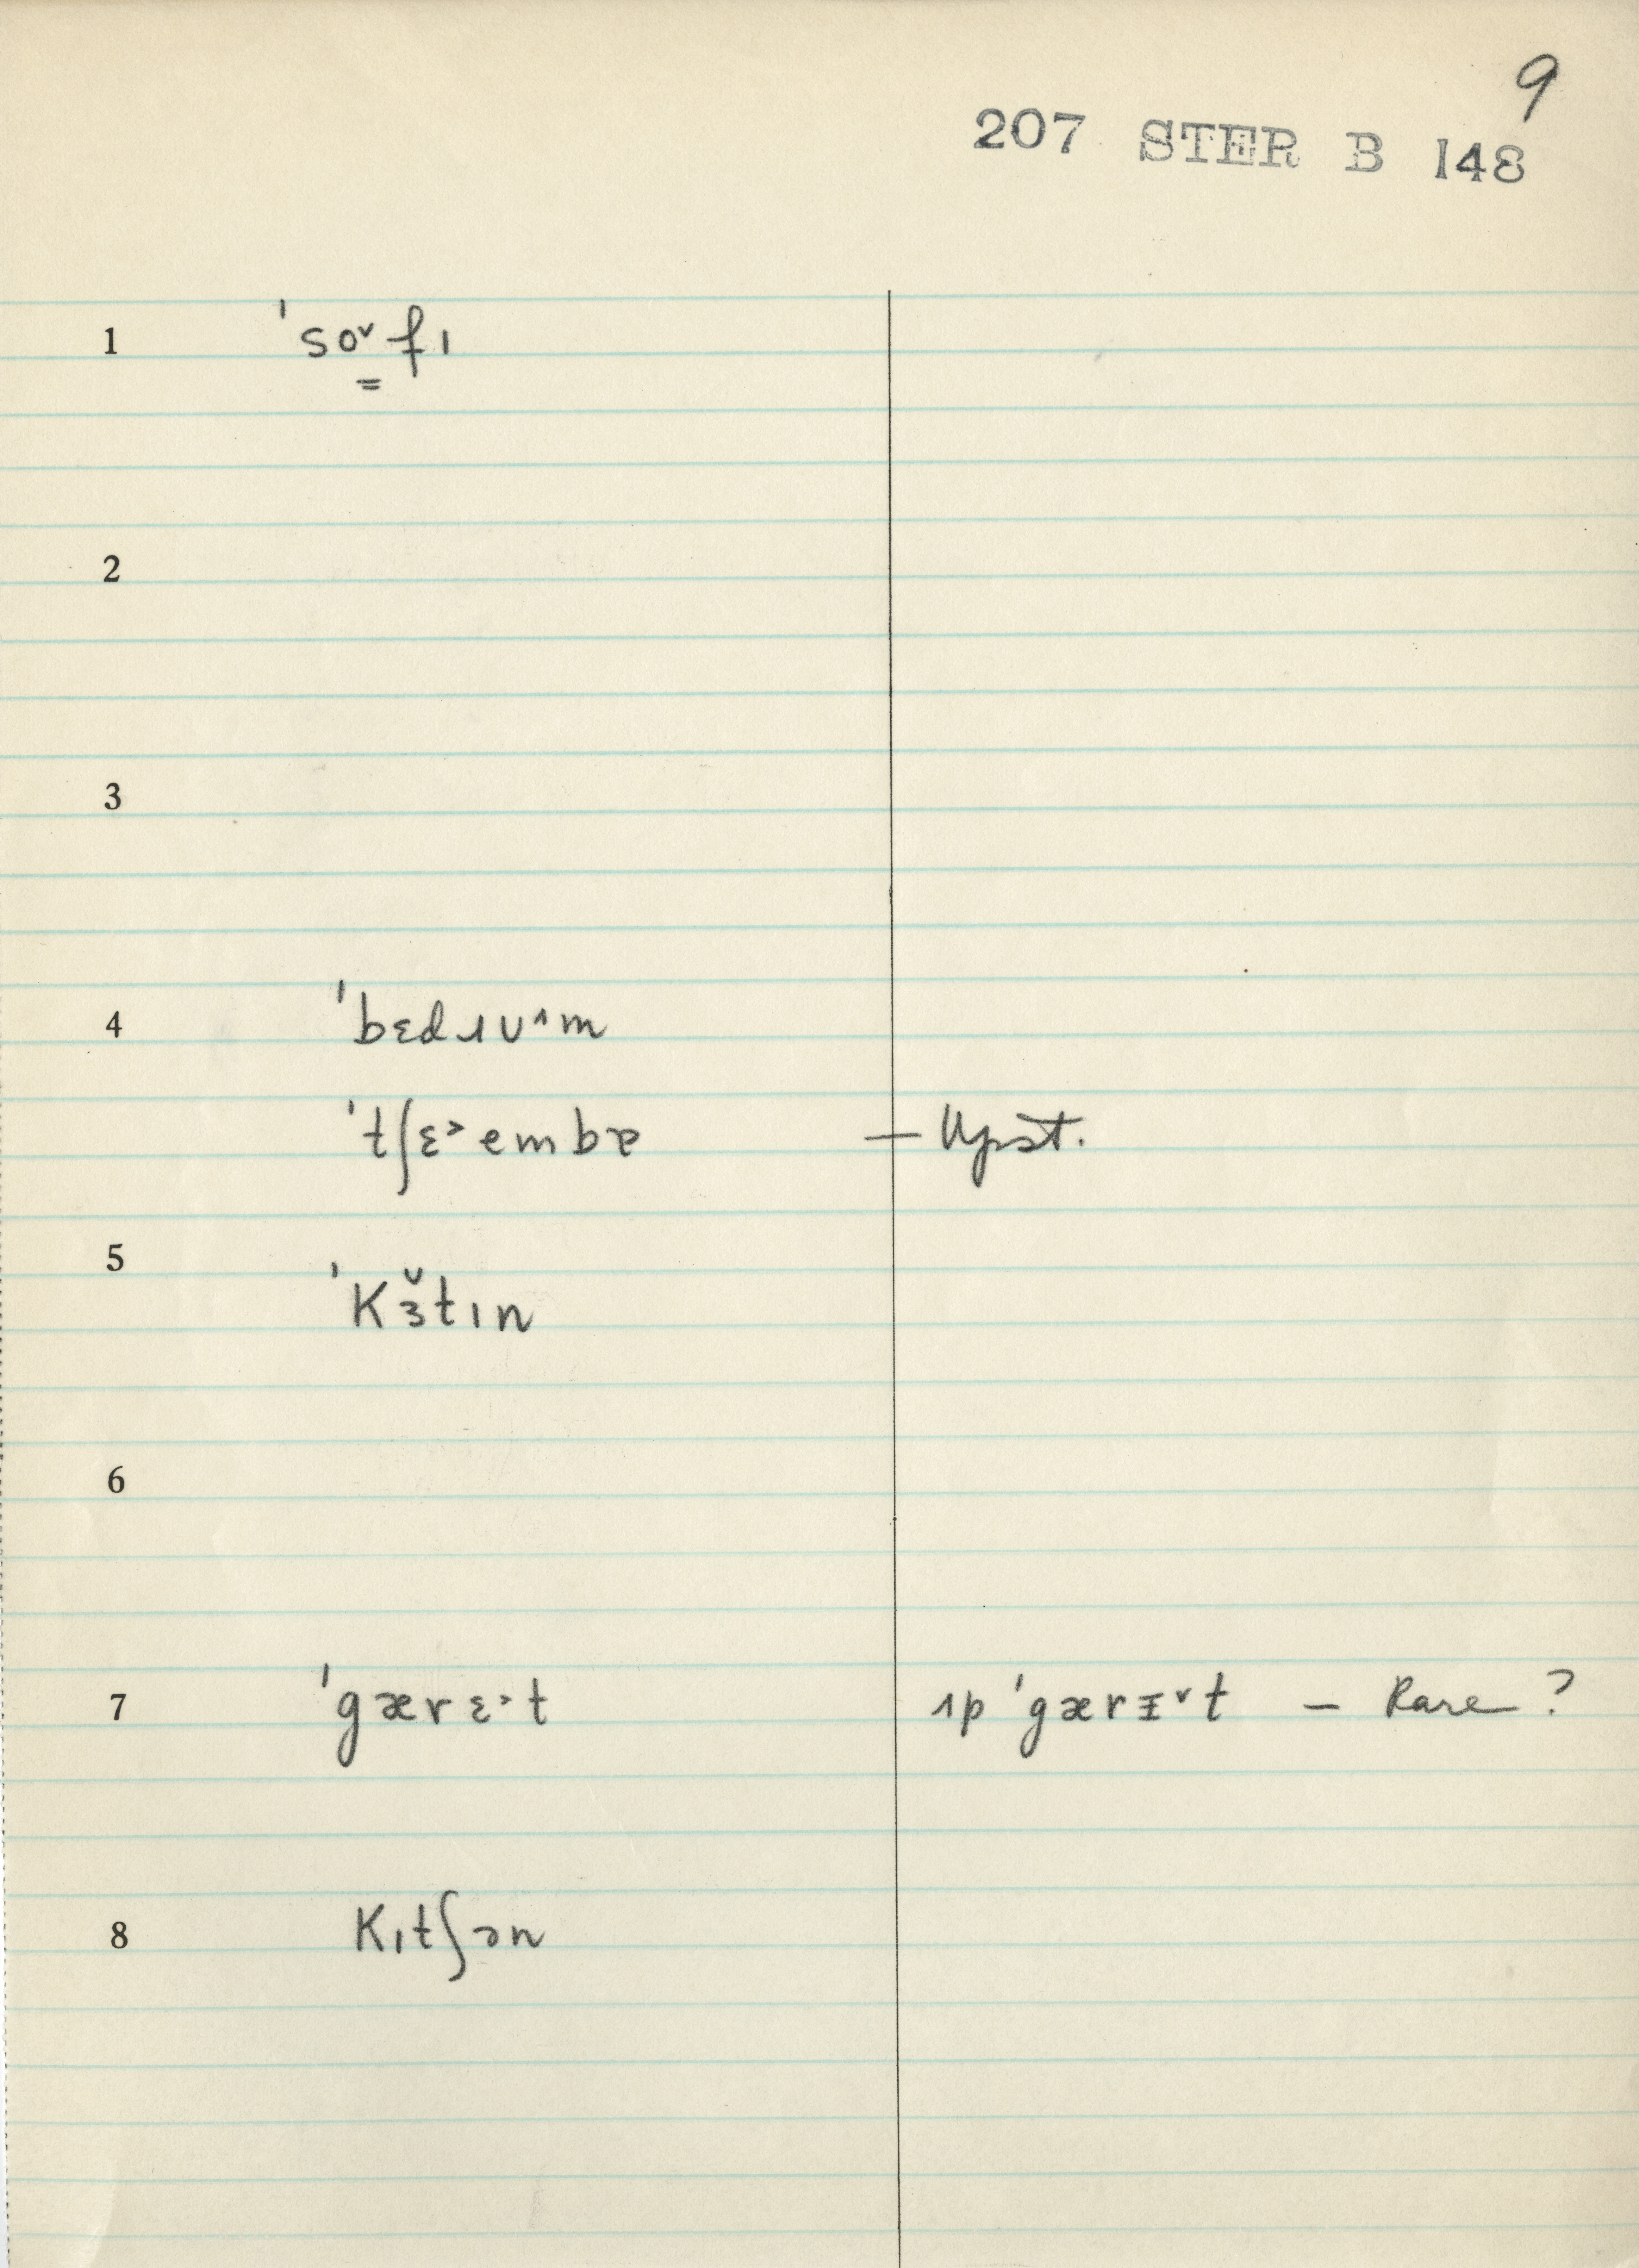 9
207 STER B 148
1 ˈsoˇfı
2
3
4 ˈbɛdɹuˆm
ˈtʃɛ˃embɐ — Upst.
5 ˈKɜ̆tın
6
7 ˈgærɛ˃t ıp ˈgærɪˇt — Rare ?
8 Kıtʃən